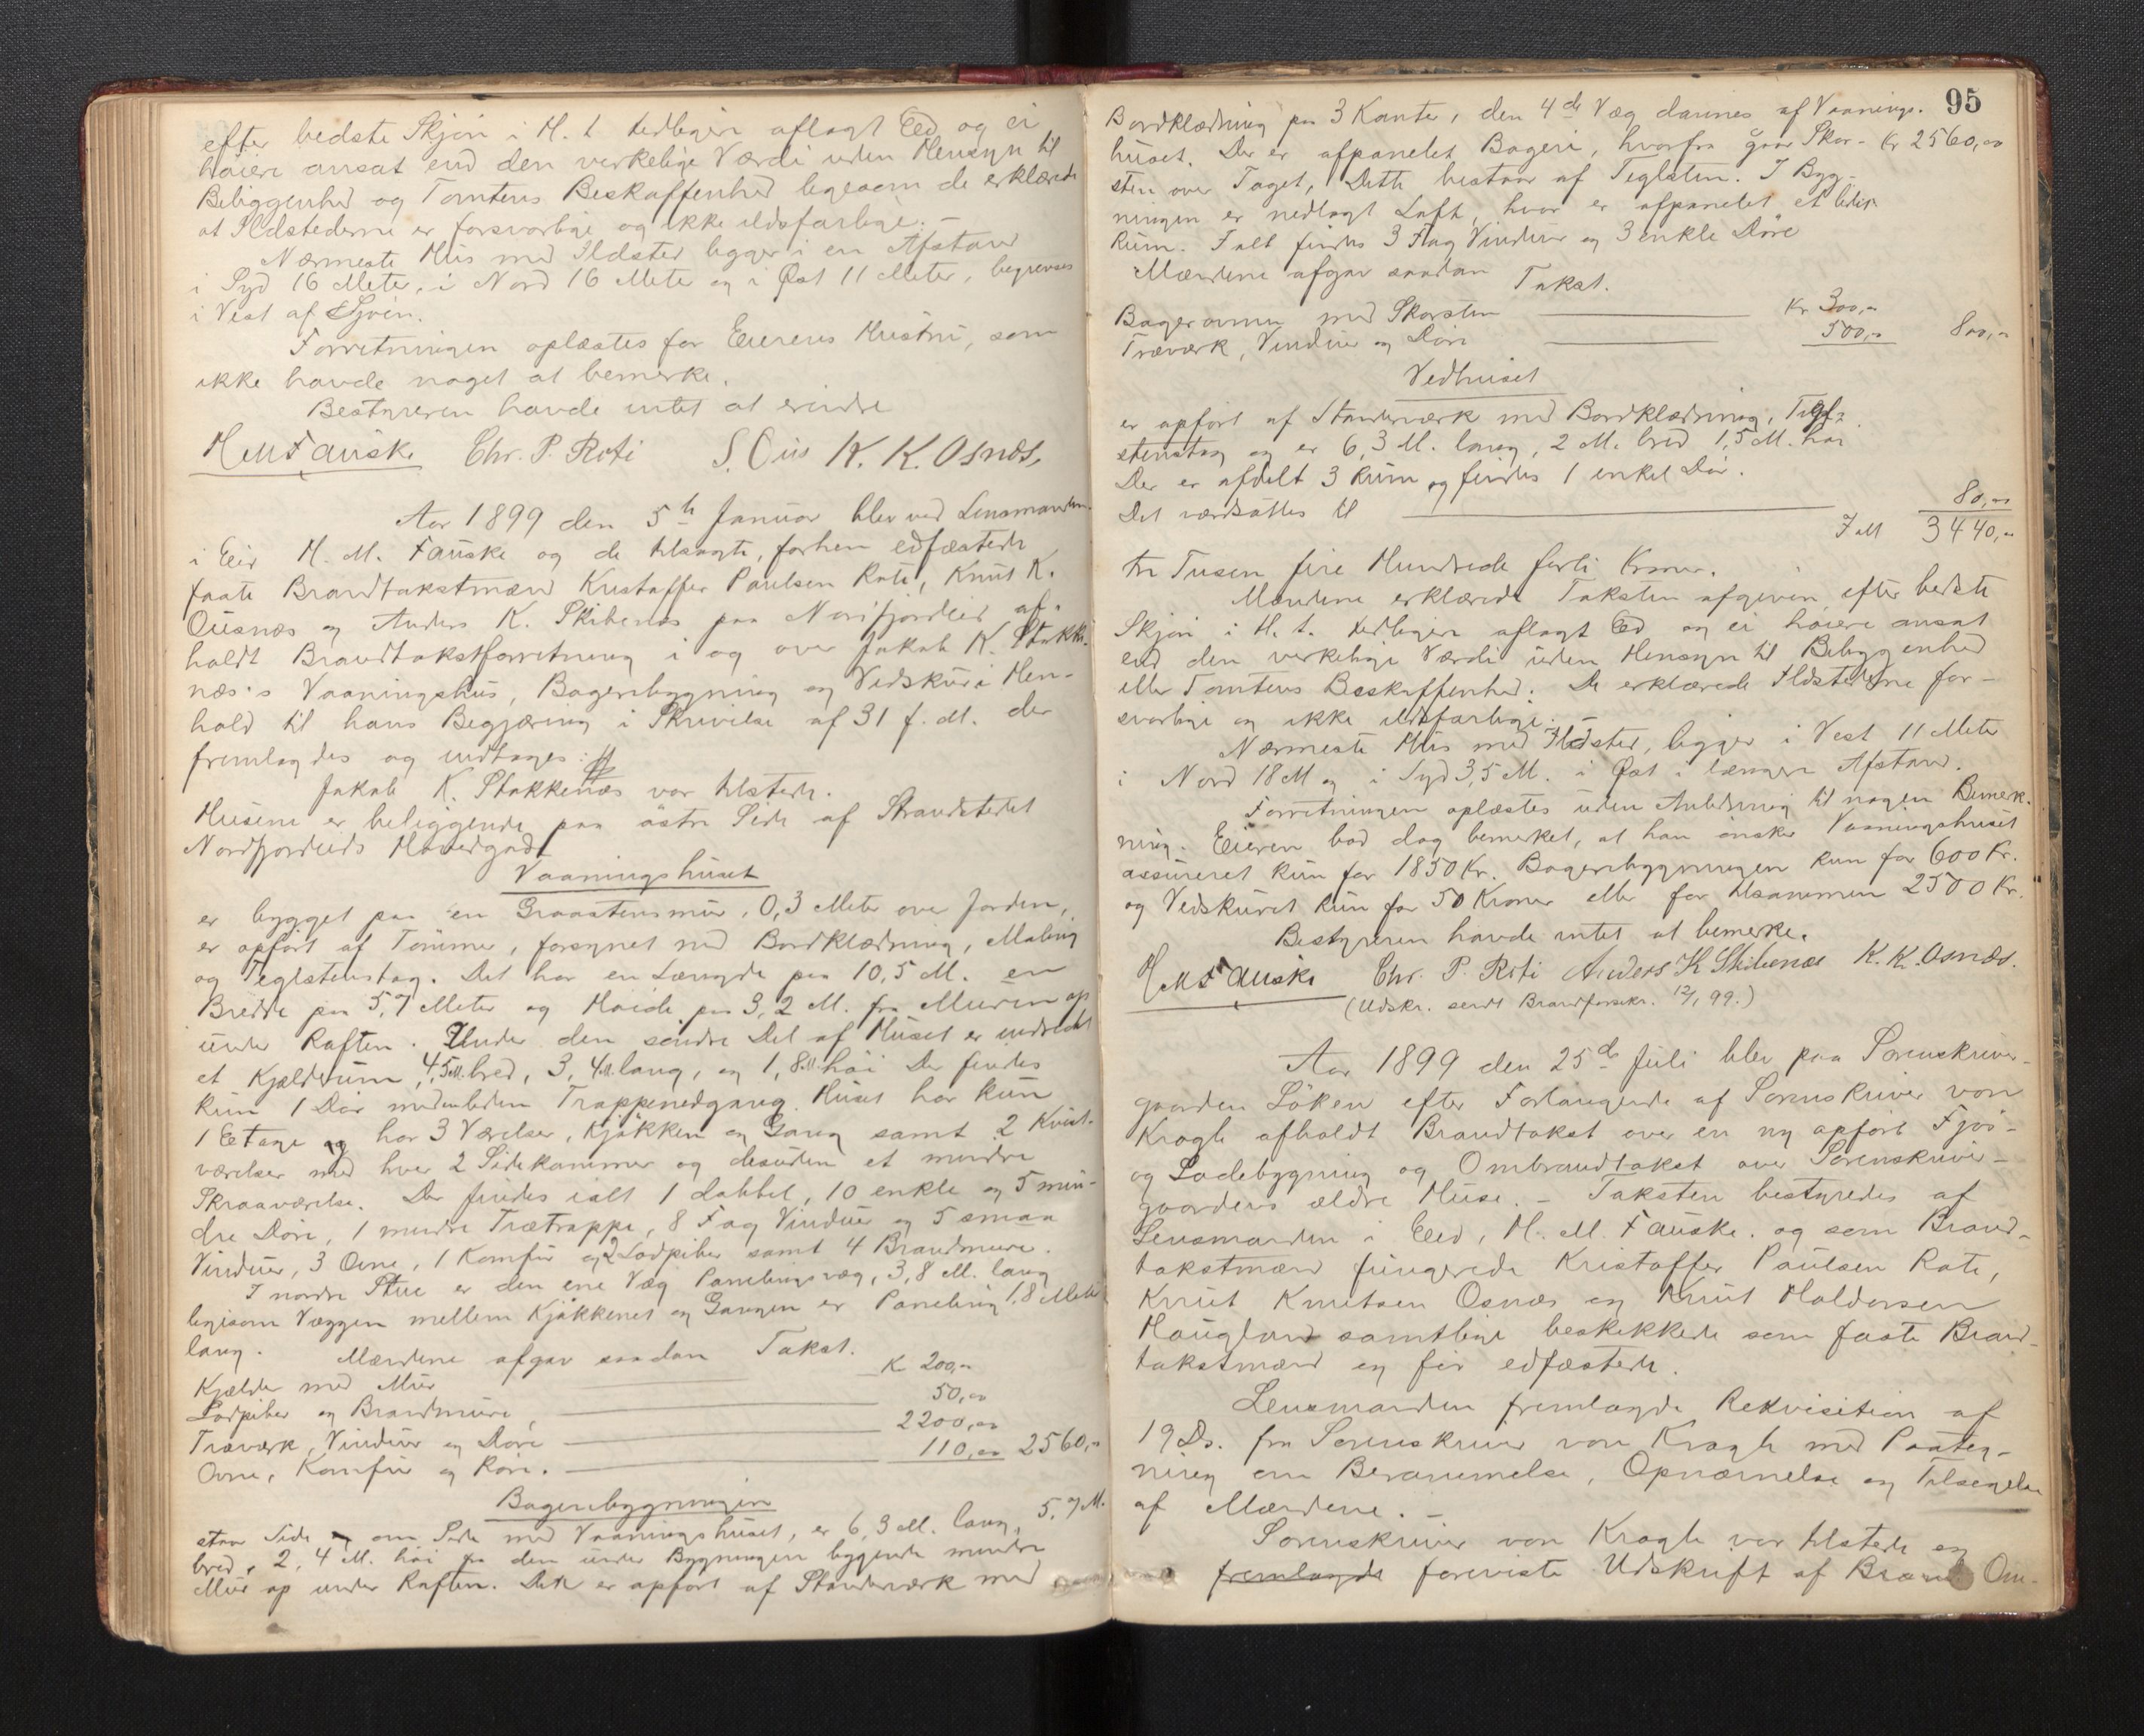 efter bedste Skjøn i H. t. tidligere aflagt Eed og ei
høiere ansat end den verkelige Værdi uden Hensyn til
Beliggenhed og Tomtens Beskaffenhed ligesom de erklærede
at Ildstederne er forsvarlige og ikke ildsfarlige. –
Nærmeste Hus med Ildsted ligger i en Afstand
i Syd 16 Meter, i Nord 16 Meter og i Øst 11 Meter, begrenses
i Vest af Sjøen.
Forretningen oplæstes for Eierens Hustru, som
ikke havde noget at bemerke.
Bestyreren havde intet at erindre
H M Fauske Chr. P. Roti S. Ous K. K. Osnæs,
Aar 1899 den 5te Januar blev ved Lensmanden
i Eid H. M. Fauske og de tilsagte, forhen edfæstede
faste Brandtakstmænd Kristoffer Paulsen Roti, Knut K.
Ousnæs og Anders K. Skibenæs paa Nordfjordeid af-
holdt Brandtakstforretning i og over Jakob K. Stokke-
næs's Vaaningshus, Bageribygning og Vedskur i Hen-
hold til hans Begjæring i Skrivelse af 31 f. M. der
fremlagdes og indtages: #
Jakob K. Stokkenæs var tilstede.
Husene er beliggende paa østre Side af Strandstedet
Nordfjordeids Hovedgade
Vaaningshuset
er bygget paa en Graastensmur, 0,3 Meter over Jorden,
er opført af Tømmer, forsynet med Bordklædning, Maling
og Teglstenstag. Det har en Længde paa 10,5 M. en
Bredde paa 5,7 Meter og Høide paa 3,2 M. fra Muren op
under Raften. Under den søndre Del af Huset er indredet
et Kjælderum, 4,5 M. bred, 3,4 M. lang, og 1,8 M. høi Der findes
kun 1 Dør med Trappenedgang. Huset har kun
1 Etage og har 3 Værelser, Kjøkken og Gang samt 2 Kvist-
værelser med hver 2 Sidekammer og desuden et mindre
Skraaværelse. Der findes ialt 1 dobbel, 10 enkle og 5 min-
dre Døre, 1 mindre Trætrappe, 8 Fag Vinduer og 5 smaa
Vinduer, 3 Ovne, 1 Komfur og 2 Lodpiber samt 4 Brandmure.
I nordre Stue er den ene Væg Panelingsvæg, 3,8 M. lang
ligesom Væggen mellem Kjøkkenet og Gangen er Paneling 1,8 Meter
lang. Mændene afgav saadan Takst.
Kjælder med Mur Kr 200,00
Lodpiber og Brandmure, 50,00
Træværk, Vinduer og Døre 2200,00
Ovne, Komfur og Rør. 110,00 2560,00
Bageribygningen
staar Side om Side med Vaaningshuset, er 6,3 M. lang, 5,7 M.
bred, 2,4 M. høi fra den under Bygningen liggende mindre
Mur op under Raften. Den er opført af Stenderværk med
95
Bordklædning paa 3 Kanter, den 4de Væg dannes af Vaanings-
huset. Der er afpanelet Bageri, hvorfra gaar Skor- Kr 2560,00
sten over Taget, Dette bestaar af Teglsten. I Byg-
ningen er nedlagt Loft, hvor er afpanelet et lidet
Rum. Ialt findes 3 Fag Vinduer og 3 enkle Døre
Mændene afgav saadan Takst.
Bagerovnen med Skorsten Kr 300,00
Træværk, Vinduer og Døre 500,00 800,00
Vedhuset
er opført af Stenderværk med Bordklædning, Tegl-
stenstag og er 6,3 M. lang, 2 M. bred 1,5 M. høi
Der er afdelt 3 Rum og findes 1 enkel Dør.
Det værdsættes til 80,00
Ialt 3440,00
tre Tusen fire Hundrede førti Kroner.
Mændene erklærede Taksten afgiven efter bedste
Skjøn i H. t. tidligere aflagt Eed og ei høiere ansat
end den verkelige Værdi uden Hensyn til Beliggenhed
eller Tomtens Beskaffenhed. De erklærede Ildstederne for-
svarlige og ikke ildsfarlige. –
Nærmeste Hus med Ildsted, ligger i Vest 11 Meter
i Nord 18 M og i Syd 3,5 M. i Øst i længere Afstand.
Forretningen oplæstes uden Anledning til nogen Bemerk-
ning. Eieren bad dog bemerket, at han ønsker Vaaningshuset
assureret kun for 1850 Kr. Bageribygningen kun for 600 Kr.
og Vedskuret kun for 50 Kroner eller for tilsammen 2500 Kr.
Bestyreren havde intet at bemerke.
H M Fauske Chr. P. Roti Anders K Skibenæs K. K. Osnæs.
(Udskr. sendt Brandforsikr. 12/1 99.)
Aar 1899 den 25de Juli blev paa Sorenskriver-
gaarden Løken efter Forlangende af Sorenskriver von
Krogh afholdt Brandtakst over en ny opført Fjøs-
og Ladebygning og Ombrandtakst over Sorenskriver-
gaardens ældre Huse. – Taksten bestyredes af
Lensmanden i Eid, H. M. Fauske. og som Brand-
takstmænd fungerede Kristoffer Paulsen Rote,
Knut Knutsen Osnæs og Knut Haldorsen
Hougland samtlige beskikkede som faste Brand-
takstmænd og før edfæstede.
Lensmanden fremlagde Rekvisition af
19 Ds. fra Sorenskriver von Krogh med Paateg-
ning om Berammelse, Opnævnelse og Tilsigelse
af Mændene.
Sorenskriver von Krogh var tilstede og
fremlagde foreviste Udskrift af Brand Om-